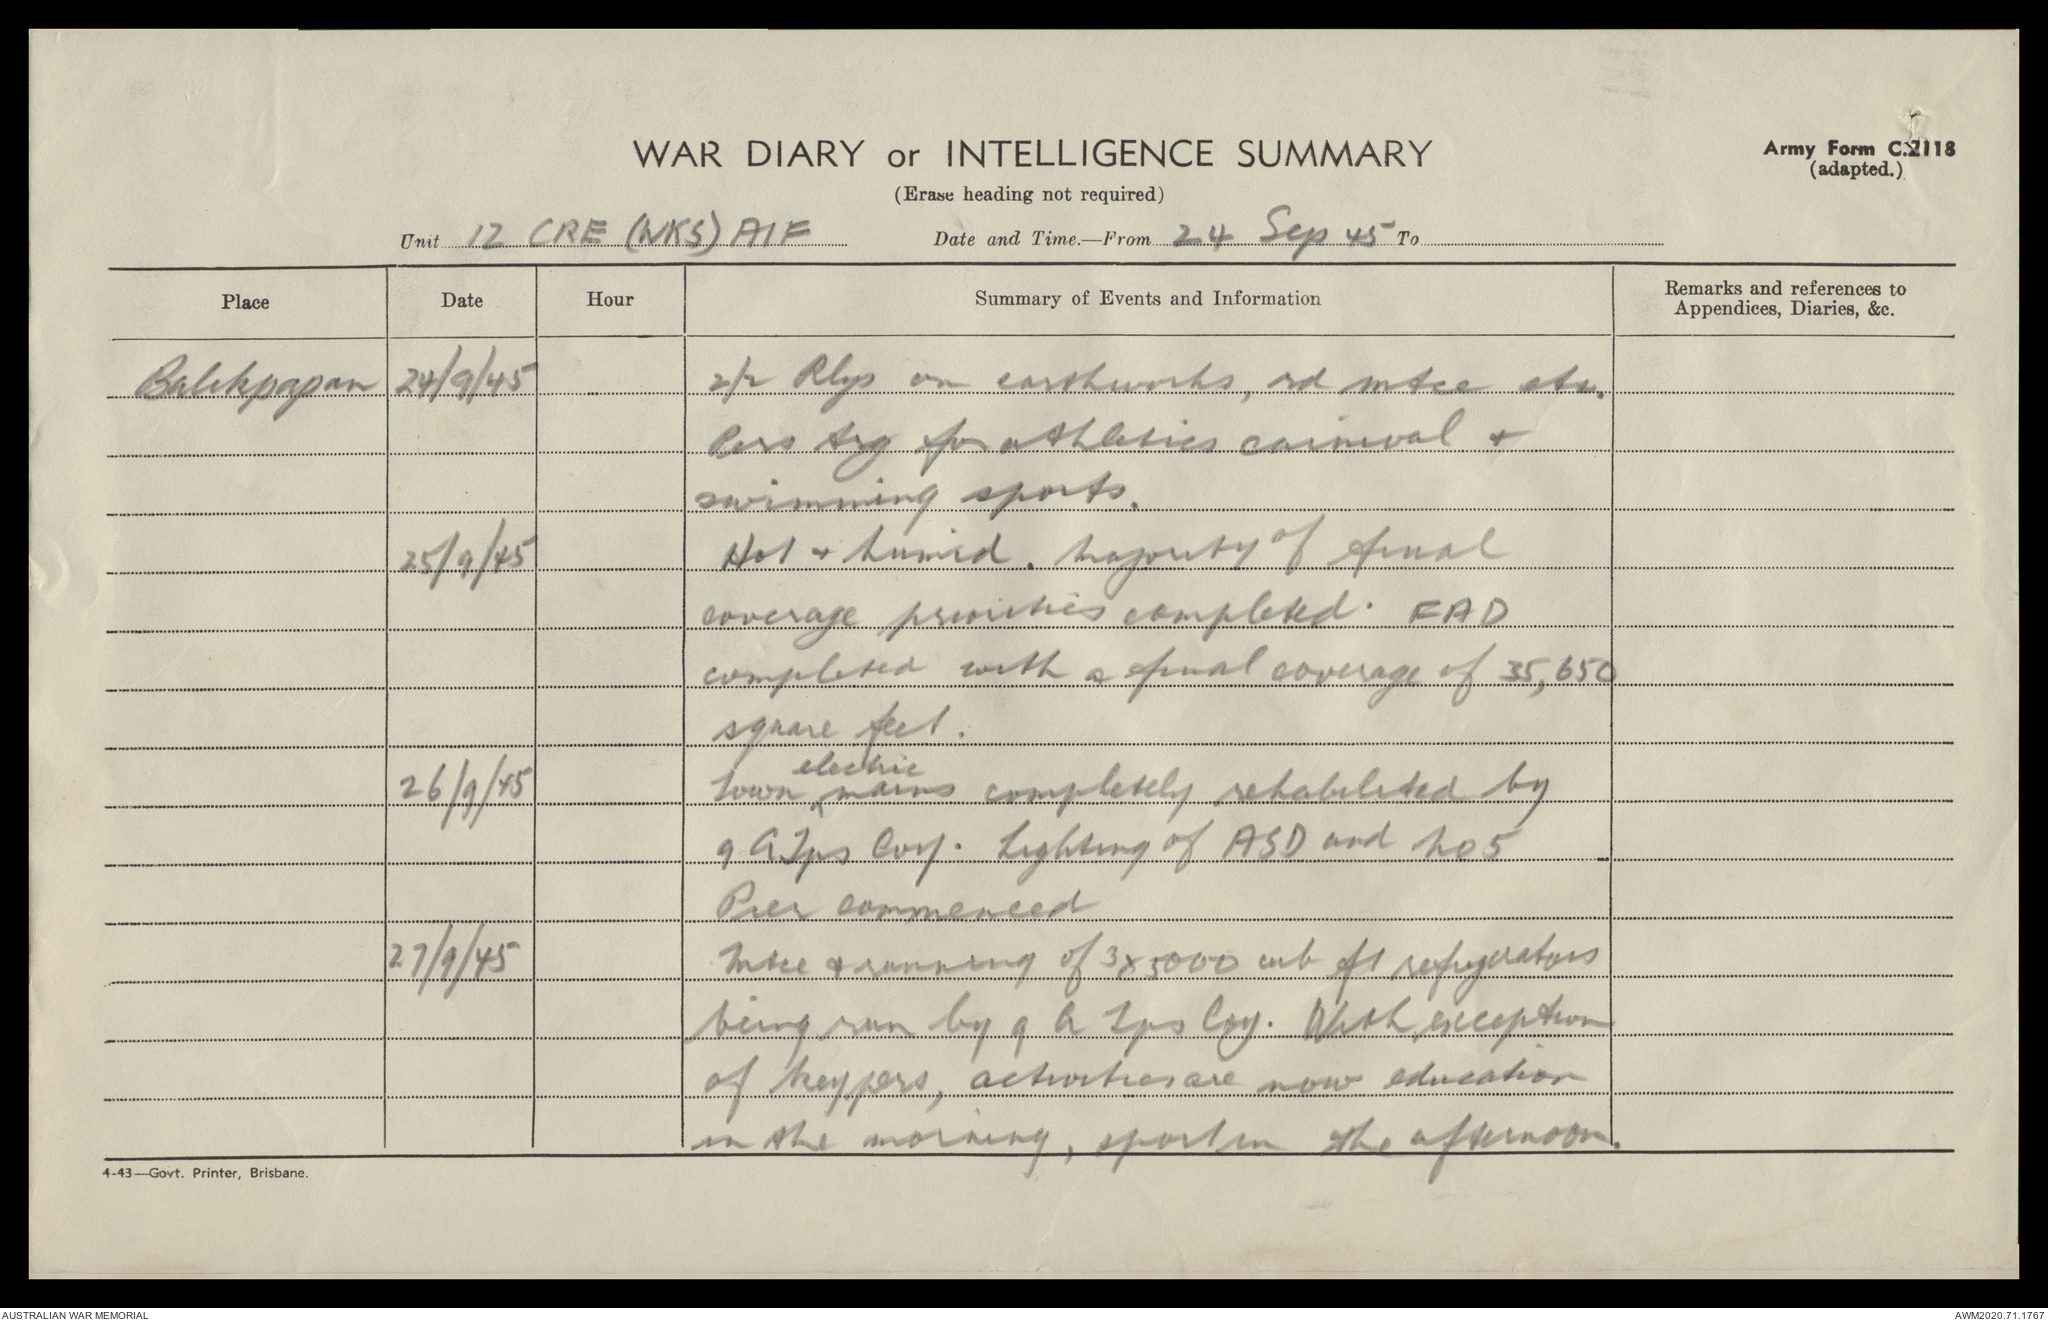 WAR DIARY or INTELLIGENCE SUMMARY
Army Form C.2118
(adapted.)
(Erase heading not required)
Unit 12 CRE (WKS) AIF Date and Time.—From 24 Sep 45 To
Place Date Hour Summary of Events and Information Remarks and references to Appendices, Diaries, &c.
Balikpapan 24/9/45 2/2 Rlys on earthworks, rd mtce etc.
Pers trg for athletics carnival +
swimming sports.
25/9/45 Hot + humid. Majority of final
coverage priorities completed. FAD
completed with a final coverage of 35,650
square feet.
electric
26/9/45 Town mains completely rehabilited by
9 A Tps Coy. Lighting of ASD and No 5
Pier commenced
27/9/45 Mtce + running of 3x5000 cub ft refrigerators
being run by 9 A Tps Coy. With exception
of key pers, activities are now education
in the morning, sport in the afternoon.
4-43—Govt. Printer, Brisbane.
AUSTRALIAN WAR MEMORIAL AWM2020.71.1767